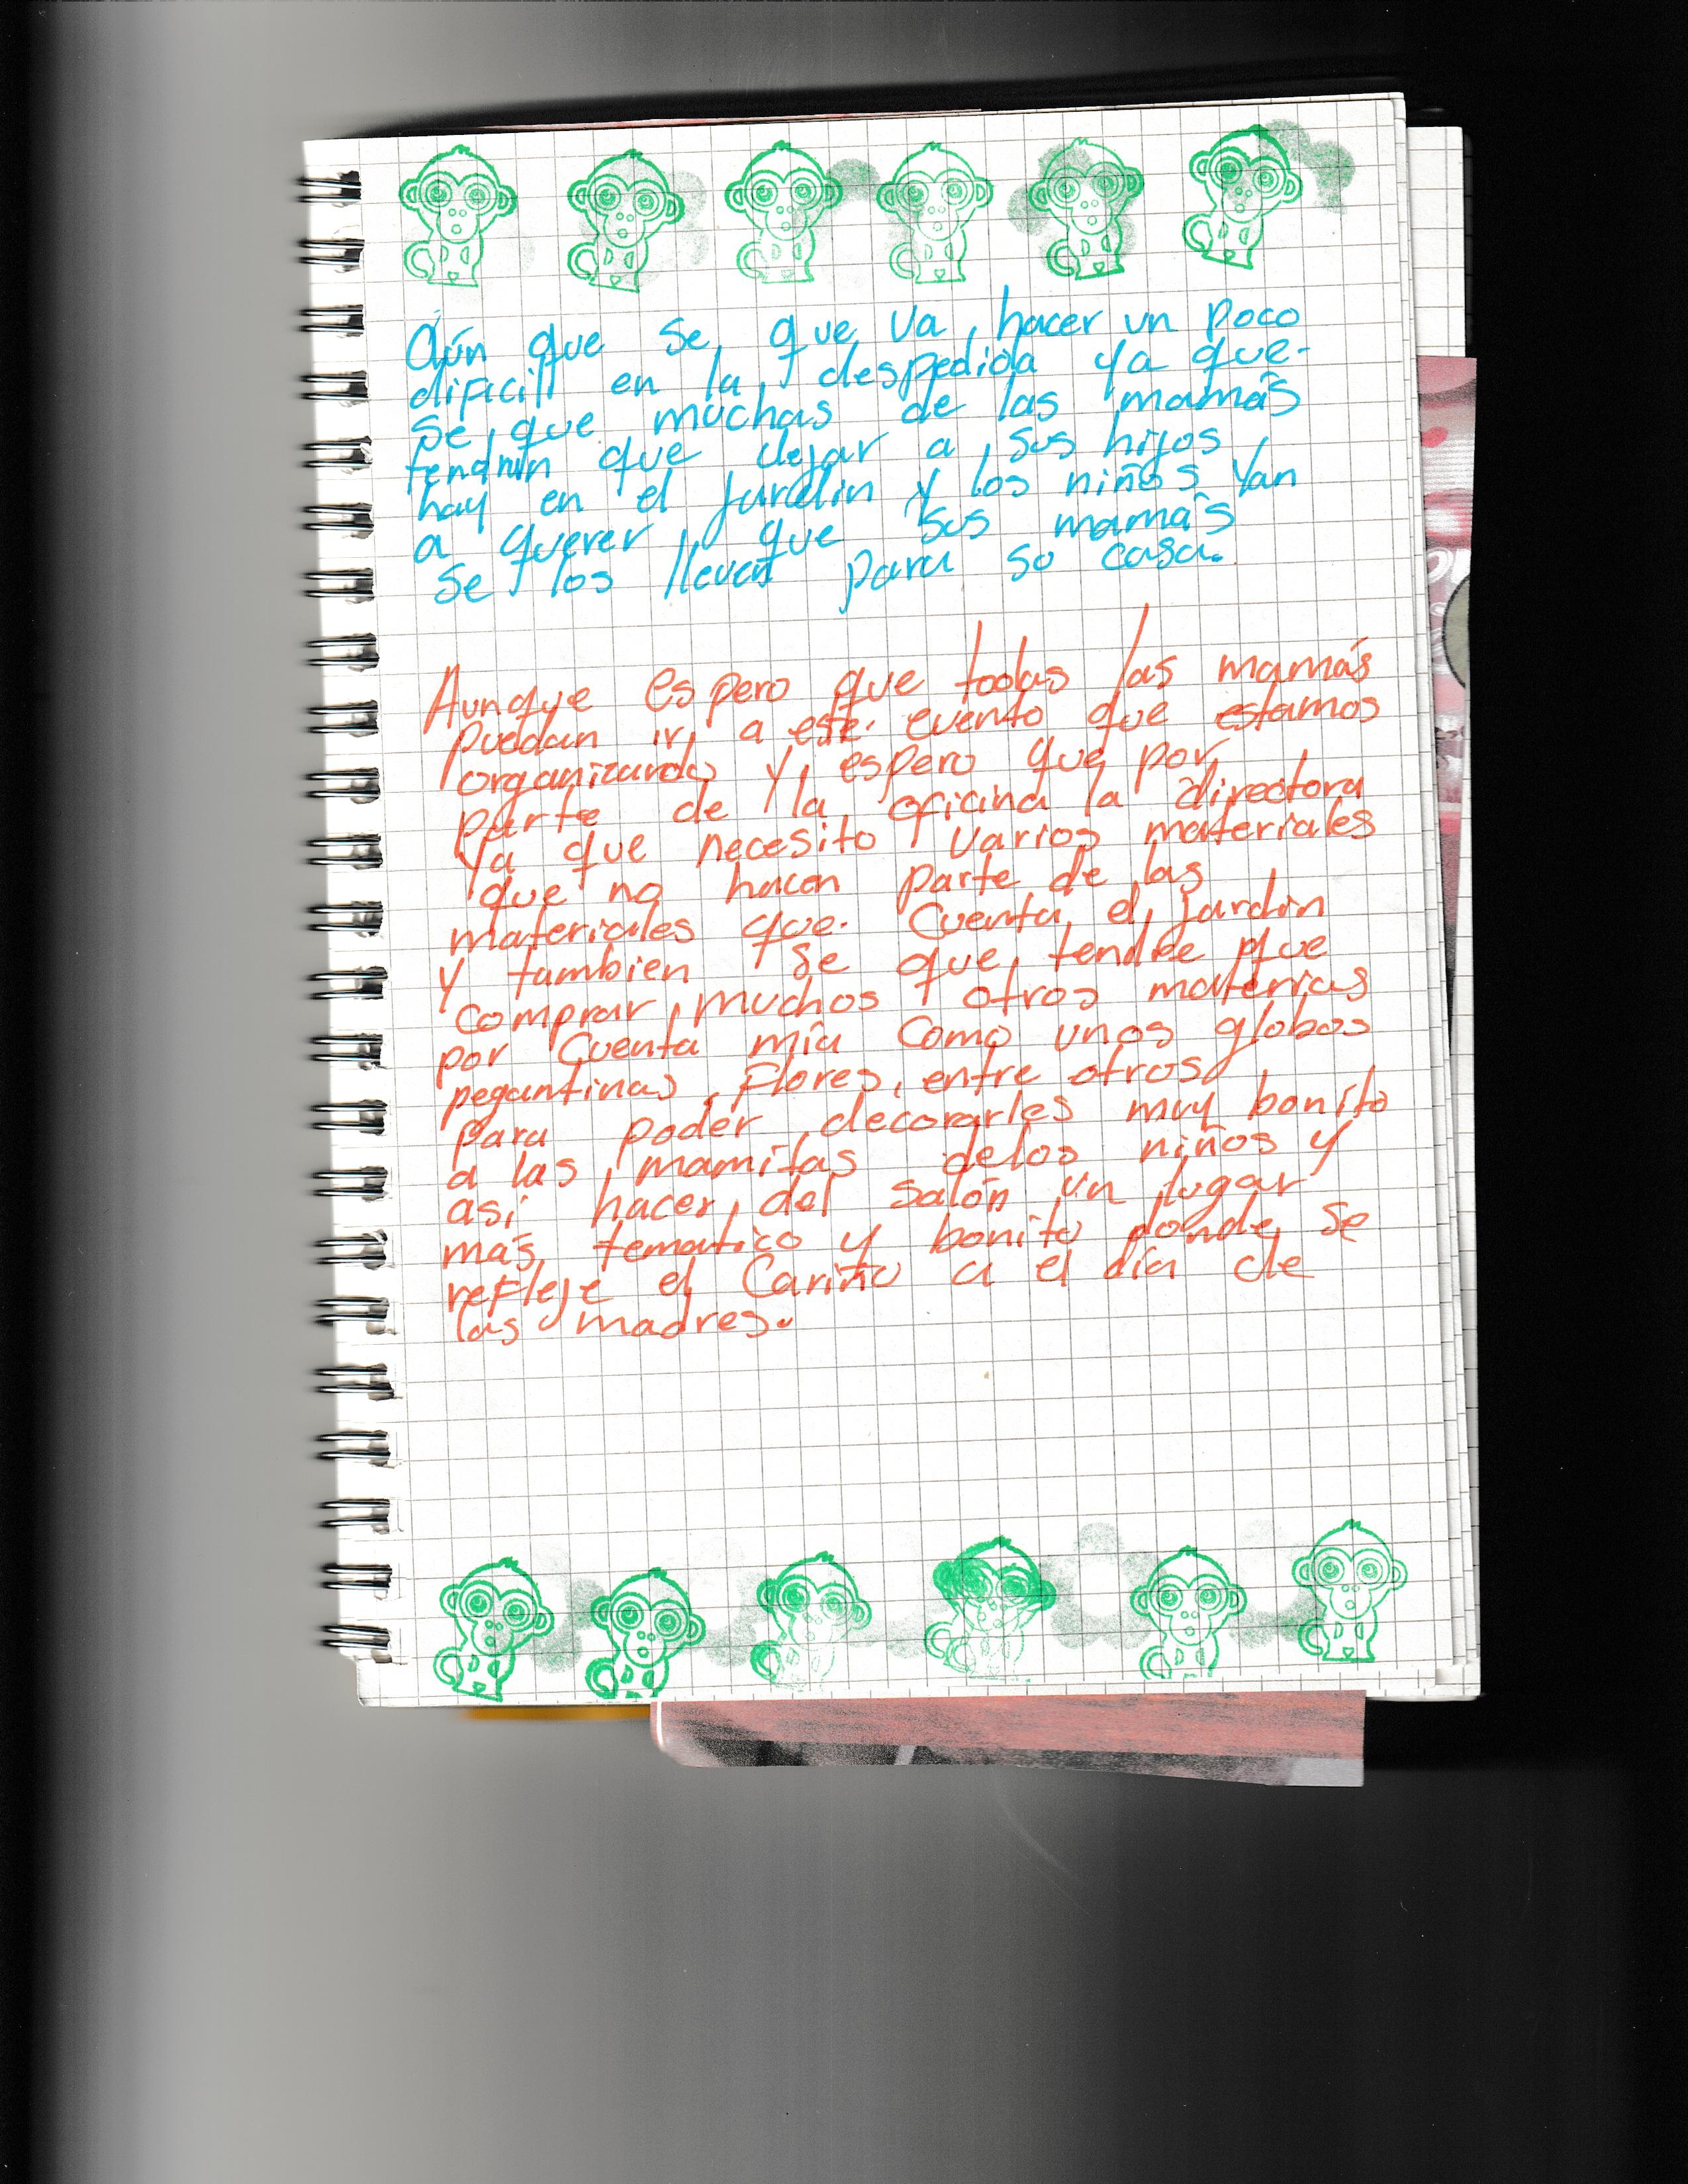 Aún que se que va hacer un poco
dificill en la despedida ya que
se que muchas de las mamás
tendran que dejar a sus hijos
hay en el jardin y los niños van
a querer que sus mamás
se los llevan para so casa.
Aunque espero que todas las mamás
puedan ir a este evento que estamos
organizando y espero que por
parte de la oficina la directora
Ya que necesito varios materiales
que no hacen parte de las
materiales que cuenta el jardin
y tambien se que tendre que
comprar muchos otros materias
por cuenta mía como unos globos
pegantinas, flores, entre otros
para poder decorarles muy bonito
a las mamitas delos niños y
asi hacer del salón un lugar
más tematico y bonito donde se
refleje el Cariño a el día de
las madres.